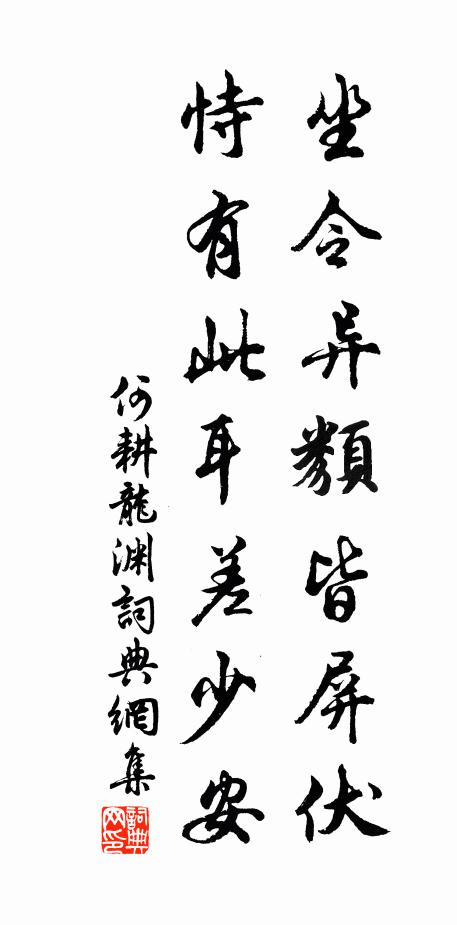 坐令异類皆屏伏
恃有此耳差少安
何耕龍渊詞典網集
詞典网印